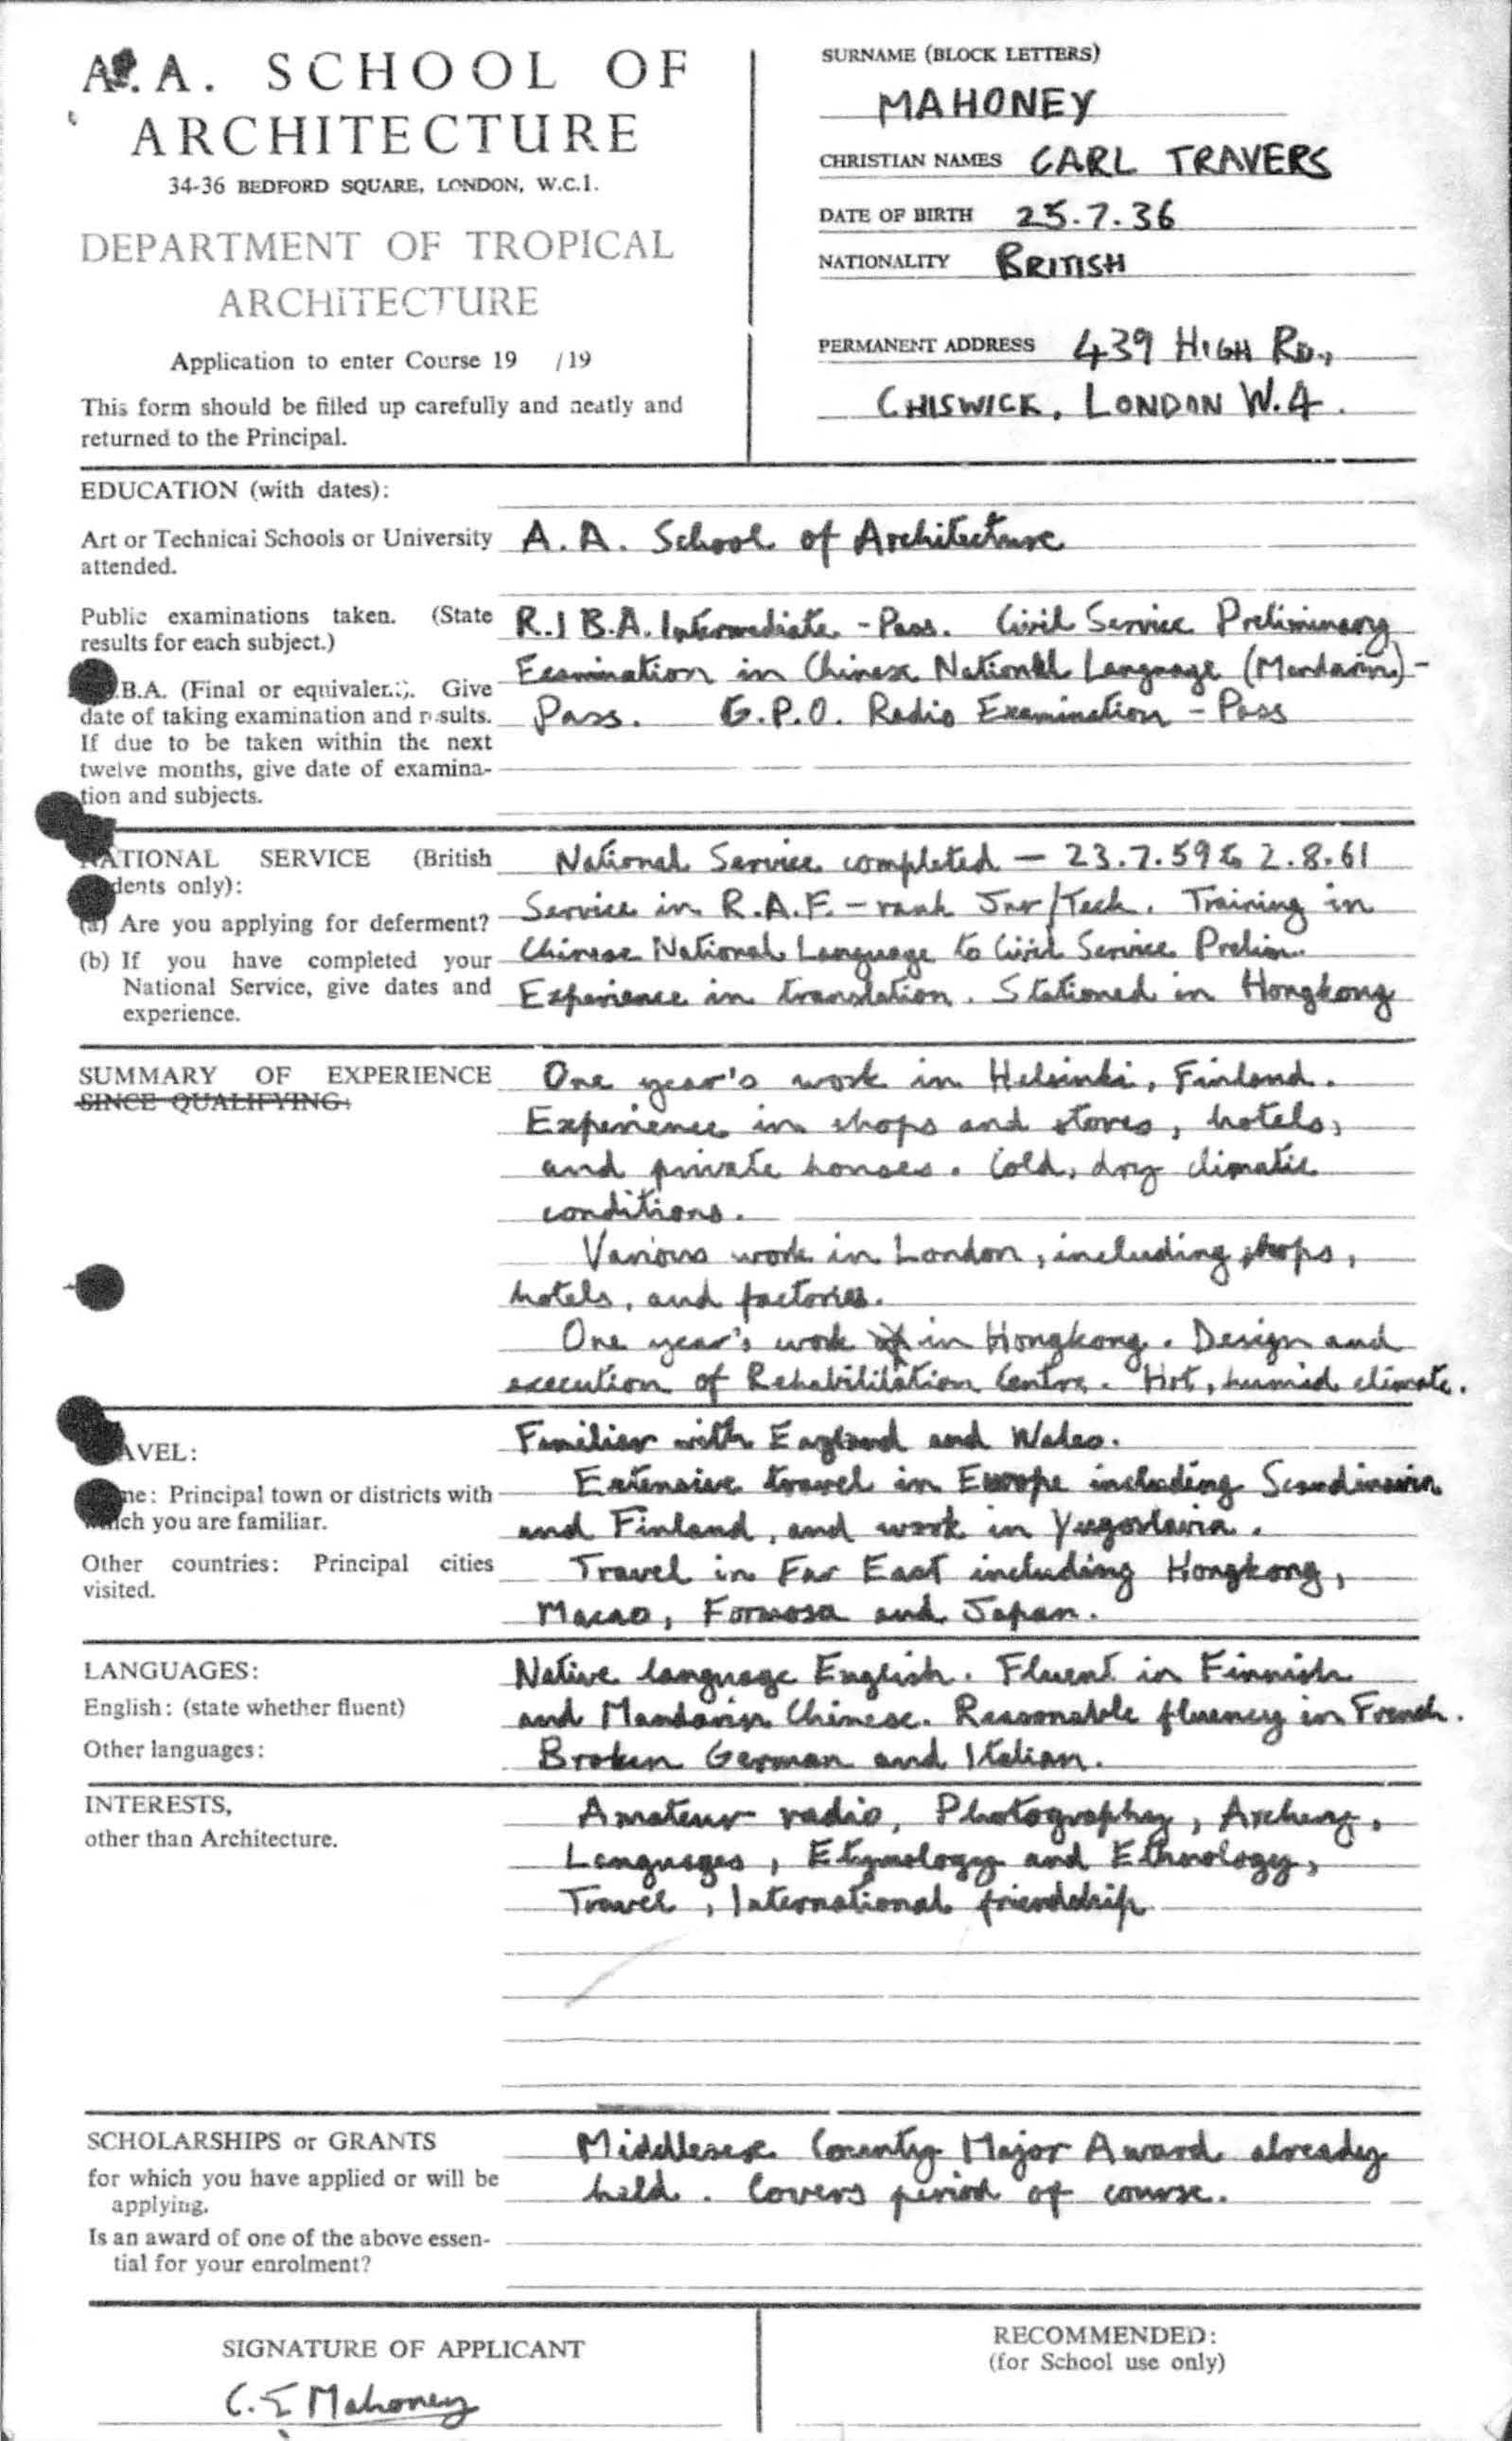 A.A. SCHOOL OF
ARCHITECTURE
34-36 BEDFORD SQUARE, LONDON, W.C.1.
DEPARTMENT OF TROPICAL
ARCHITECTURE
Application to enter Course 19 /19
This form should be filled up carefully and neatly and
returned to the Principal.
SURNAME (BLOCK LETTERS)
MAHONEY
CHRISTIAN NAMES CARL TRAVERS
DATE OF BIRTH 25.7.36
NATIONALITY BRITISH
PERMANENT ADDRESS 439 HIGH RD.,
CHISWICK, LONDON W.4.
EDUCATION (with dates):
Art or Technical Schools or University
attended.
A.A. School of Architecture
Public examinations taken. (State
results for each subject.)
B.A. (Final or equivalent). Give
date of taking examination and results.
If due to be taken within the next
twelve months, give date of examina-
tion and subjects.
R.I B.A. Intermediate - Pass. Civil Service Preliminary
Examination in Chinese National Language (Mandarin) -
Pass. G.P.O. Radio Examination - Pass
NATIONAL SERVICE (British
dents only):
(a) Are you applying for deferment?
(b) If you have completed your
National Service, give dates and
experience.
National Service completed - 23.7.59 to 2.8.61
Service in R.A.F. - rank Jnr/Tech. Training in
Chinese National Language to Civil Service Prelim.
Experience in translation. Stationed in Hongkong
SUMMARY OF EXPERIENCE
SINCE QUALIFYING:
One year's work in Helsinki, Finland.
Experience in shops and stores, hotels,
and private houses. Cold, dry climatic
conditions.
Various work in London, including shops,
hotels, and factories.
One year's work in Hongkong. Design and
execution of Rehabililation Centre. Hot, humid climate.
AVEL:
me: Principal town or districts with
which you are familiar.
Other countries: Principal cities
visited.
Familiar with England and Wales.
Extensive travel in Europe including Scandinavia
and Finland, and work in Yugoslavia.
Travel in Far East including Hongkong,
Macao, Formosa and Japan.
LANGUAGES:
English: (state whether fluent)
Other languages:
Native language English. Fluent in Finnish
and Mandarin Chinese. Reasonable fluency in French.
Broken German and Italian.
INTERESTS,
other than Architecture.
Amateur radio, Photography, Archery,
Languages, Etymology and Ethnology,
Travel, International friendship
SCHOLARSHIPS or GRANTS
for which you have applied or will be
applying.
Is an award of one of the above essen-
tial for your enrolment?
Middlesex County Major Award already
held. Covers period of course.
SIGNATURE OF APPLICANT
C. T. Mahoney
RECOMMENDED:
(for School use only)